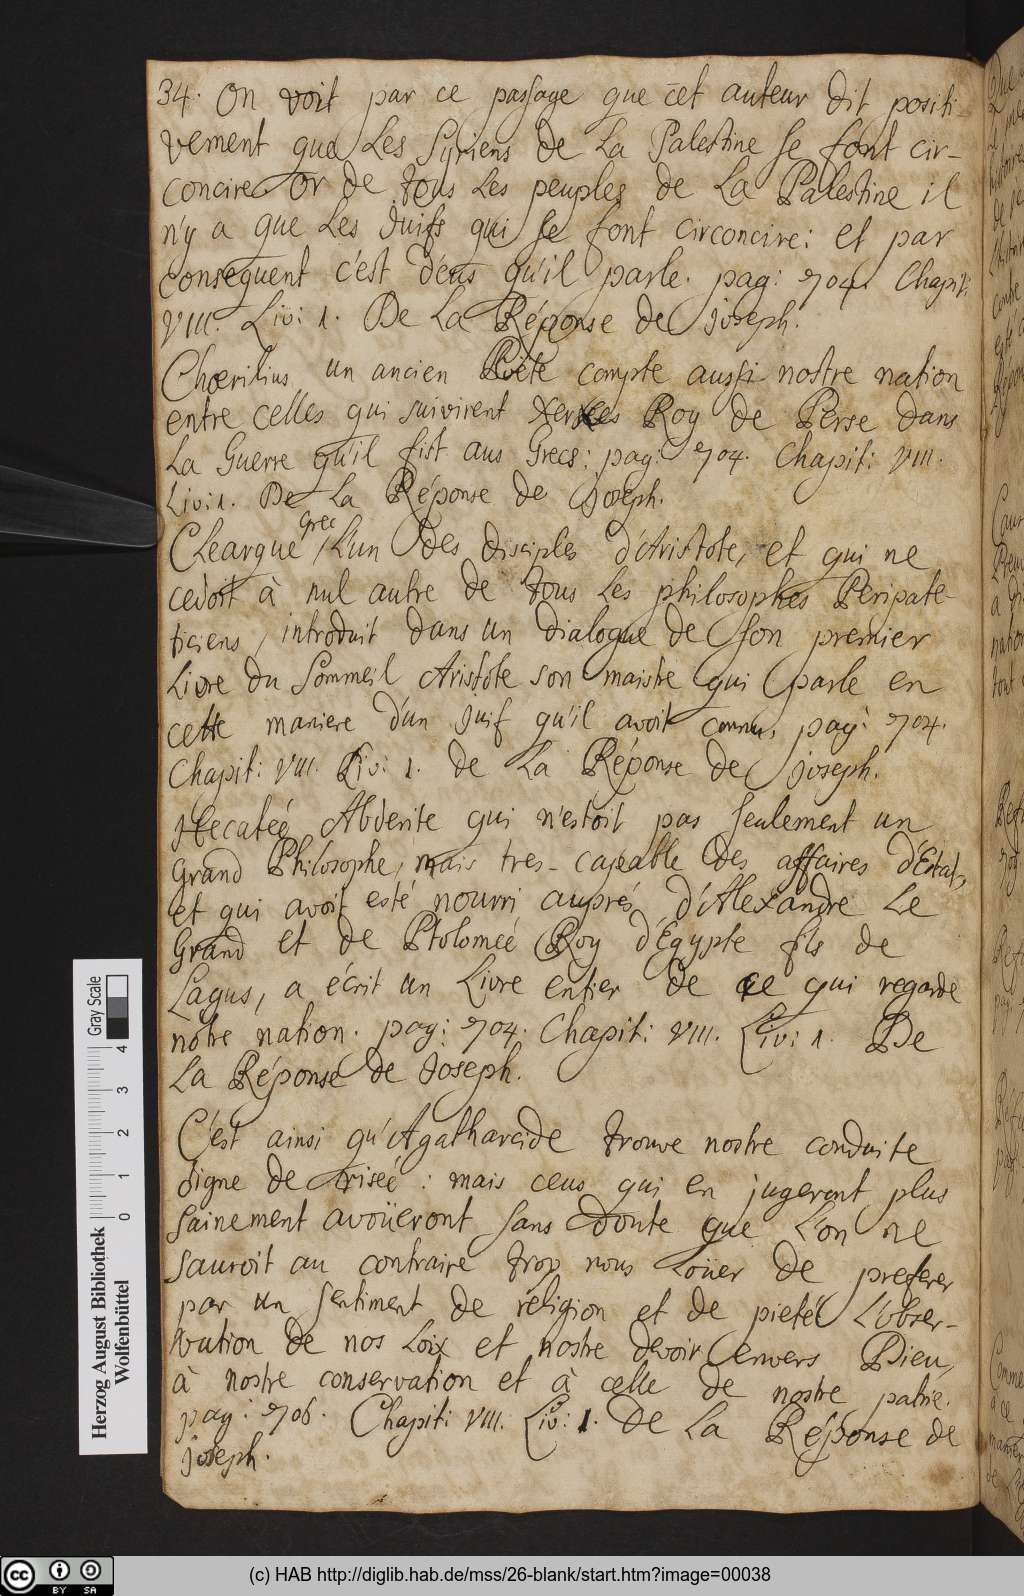 34. On voit par ce passage que cet auteur dit positi-
vement que Les Syriens de La Palestine se font cir-
concire Or de tous Les peuples de La Palestine il
n'y a que Les Juifs qui se font circoncire: et par
consequent c'est d'eus qu'il parle. pag: 704. Chapit:
VIII. Liv: 1. De La Réponse de Joseph.
Choerilius un ancien Poëte compte aussi nostre nation
entre celles qui suivirent Xerxes Roy de Perse dans
La Guerre qu'il fist aus Grecs: pag: 704. Chapit: VIII.
Liv: 1. De La Réponse de Joseph.
Grec
Clearque, L'un des disciples d'Aristote, et qui ne
cedoit à nul autre de tous Les philosophes Peripate-
ticiens, introduit dans un dialogue de son premier
Livre du Sommeil Aristote son maistre qui parle en
cette maniere d'un Juif qu'il avoit connu, pag: 704.
Chapit: VIII. Liv: 1. de La Réponse de Joseph.
Hecateé Abderite qui n'estoit pas seulement un
Grand Philosophe, mais tres-capeable des affaires d'Estat,
et qui avoit esté nourri auprés d'Alexandre Le
Grand et de Ptolomeé Roy d'Egypte fils de
Lagus, a écrit un Livre entier de ce qui regarde
notre nation. pag: 704. Chapit: VIII. Liv: 1. De
La Réponse de Joseph.
C'est ainsi qu'Agatharcide trouve nostre conduite
digne de riseé: mais ceus qui en jugeront plus
sainement avoüeront sans doute que L'on ne
sauroit au contraire trop nous Loüer de preferer
par un sentiment de religion et de pieteé L'obser-
vation de nos Loix et nostre devoir envers Dieu,
à nostre conservation et à celle de nostre patrie.
pag: 706. Chapit: VIII. Liv: 1. De La Réponse de
Joseph.
Gray Scale
0 1 2 3 4
Herzog August Bibliothek
Wolfenbüttel
cc BY SA
(c) HAB http://diglib.hab.de/mss/26-blank/start.htm?image=00038